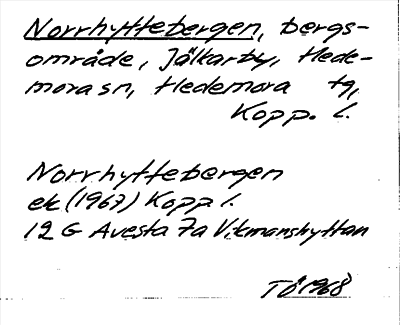 Norrhyttebergen, bergs-
område, Jälkarby, Hede-
mora sn, Hedemora tg,
Kopp. l.
Norrhyttebergen
ek (1967) Kopp l.
12 G Avesta 7a Vikmanshyttan
TÖ 1968